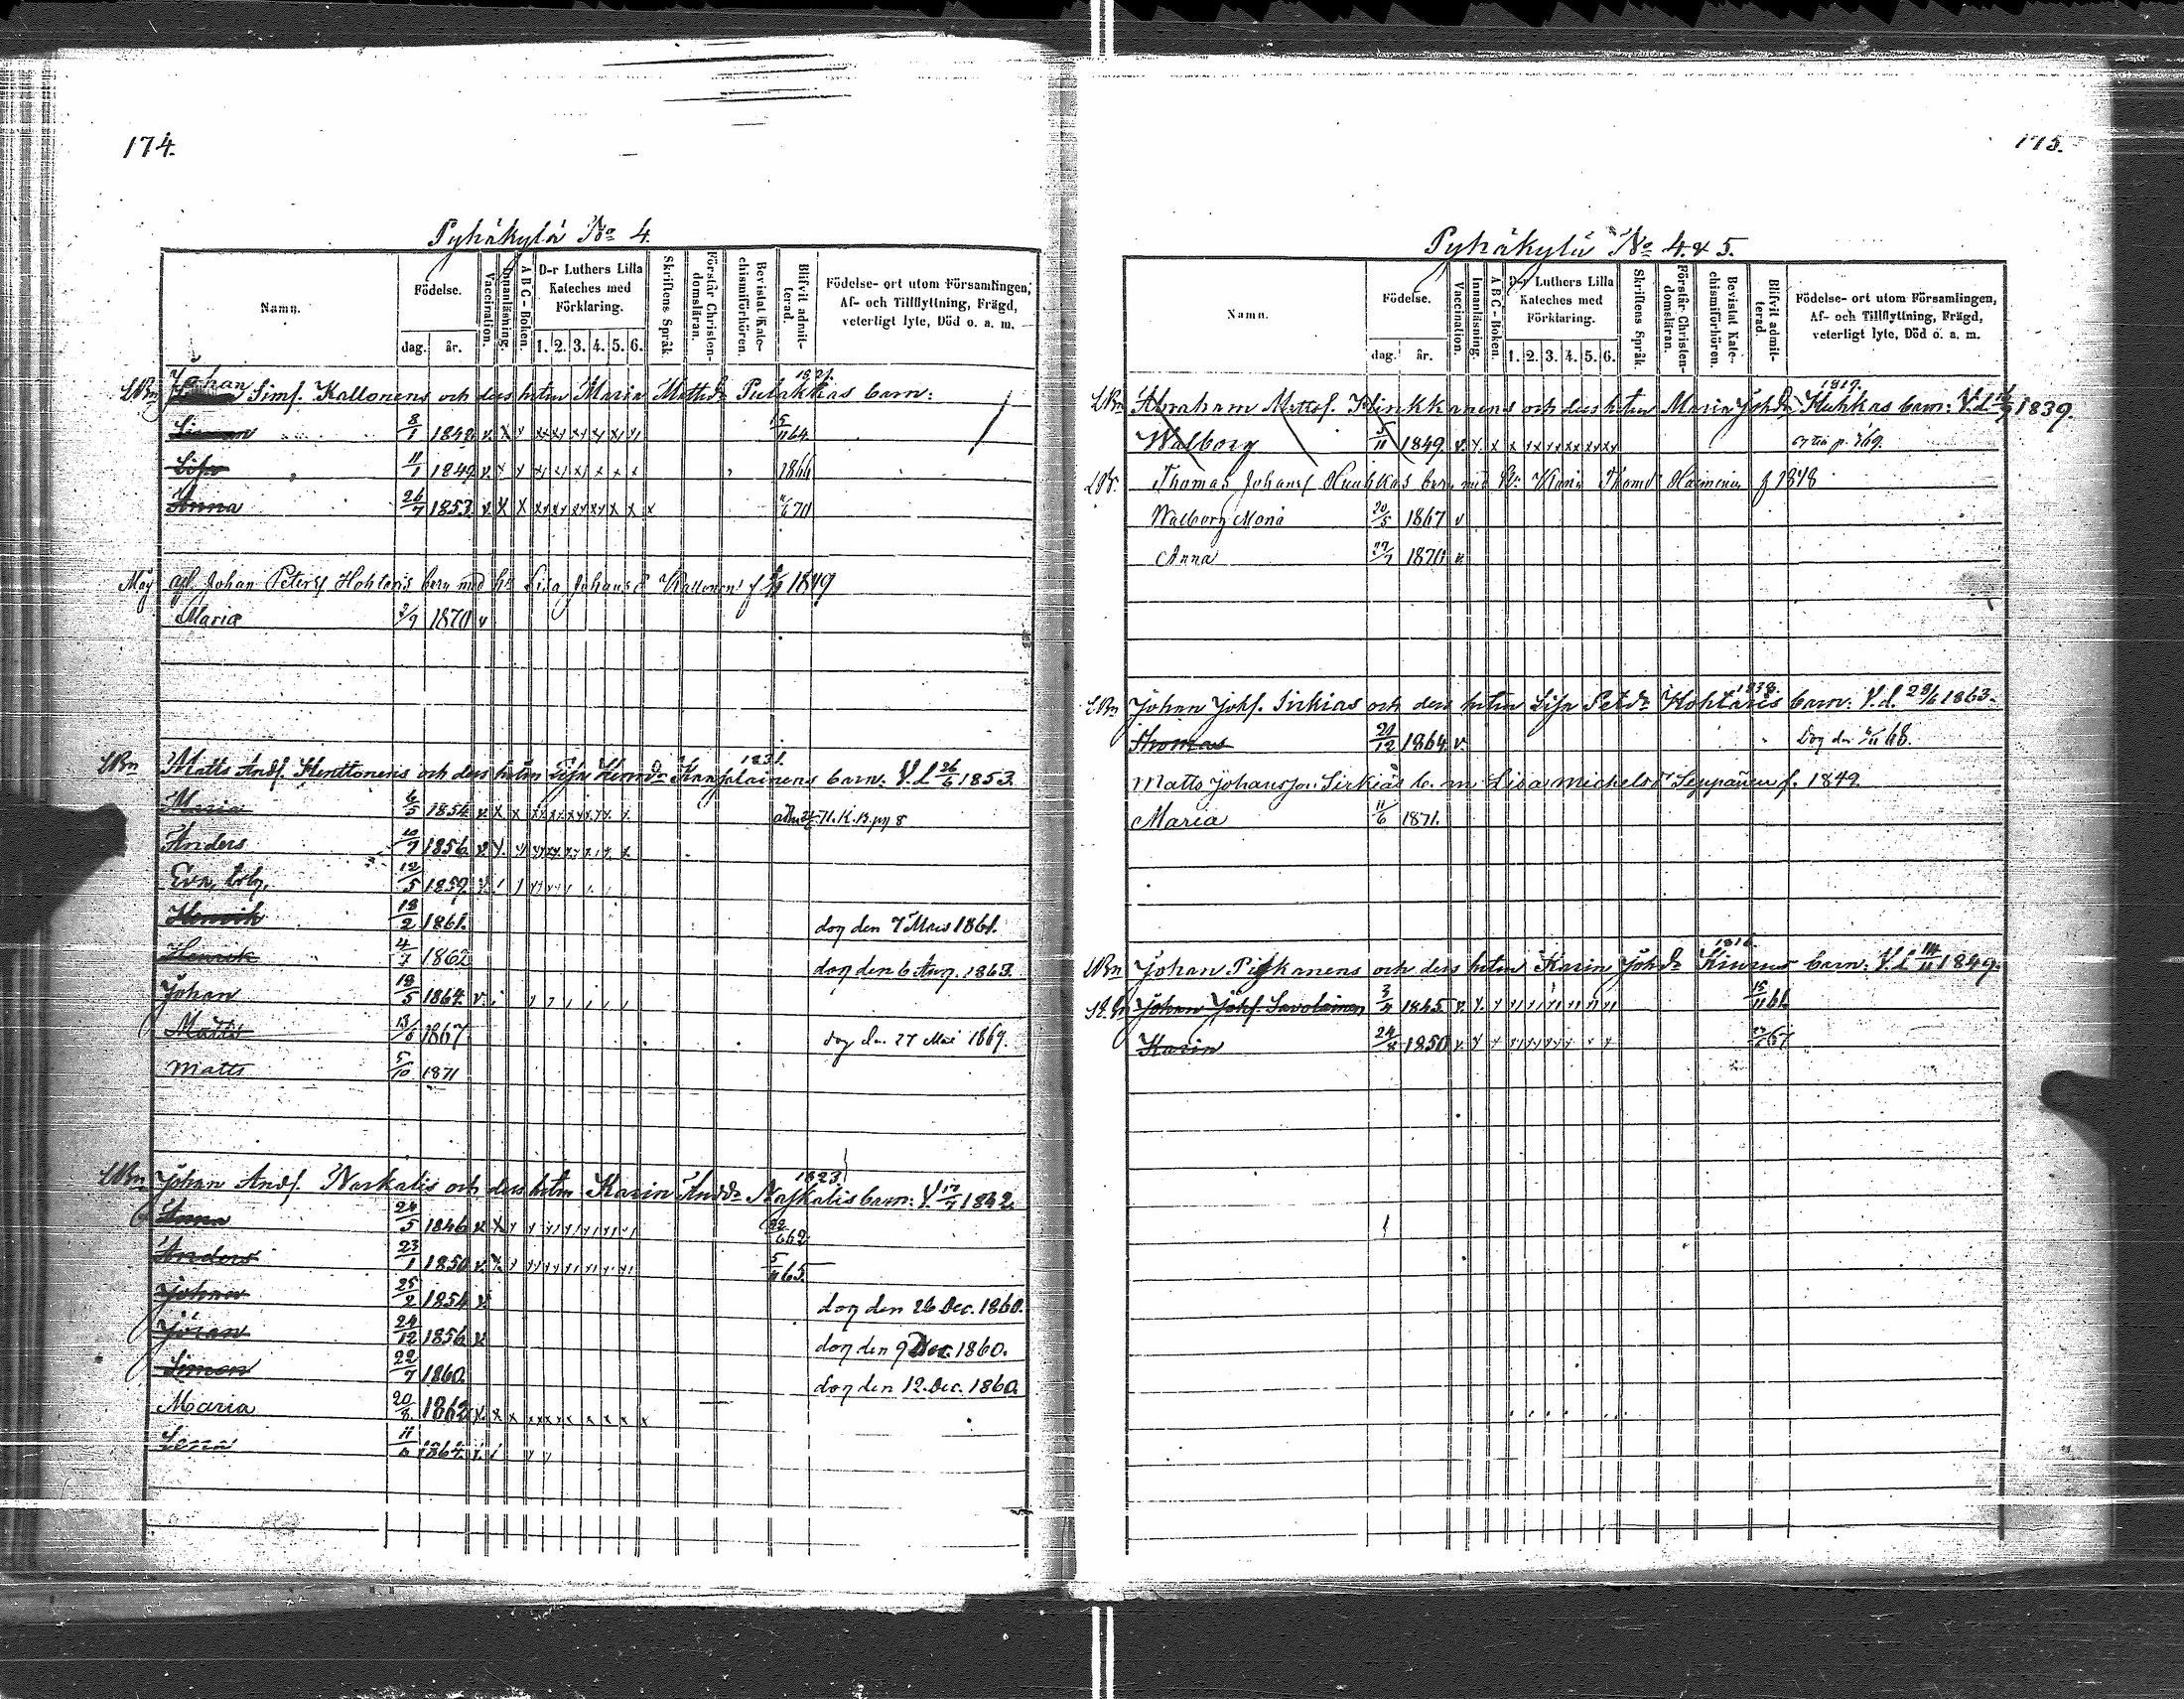 174.
Pyhäkylä No 4.
Namn.
Födelse.
dag. år.
Vaccination.
Innanläsning.
ABC-Boken.
D-r Luthers Lilla Kateches med Förklaring.
1. 2. 3. 4. 5. 6.
Skriftens Språk.
Förstår Christendomsläran.
Bevistat Katechismiförhören.
Blifvit admitterad.
Födelse- ort utom Församlingen, Af- och Tillflyttning, Frägd, veterligt lyte, Död o. a. m.
1821.
Johan Simf. Kallonens och dess hstru Maria Mattsdr barn:
Simon 8/1 1842 v. 15/11 64.
Lisa 11/1 1849 v. 1866
Anna 26/7 1853 v 70
Johan Petersf Hohteris barn med h: Lisa Johansd Kallonen f 1849
Maria 2/9 1870 v
1831.
Matts Andf. Henttonens och dess hstru Lisa Kanjalainens barn: V.d. 26/6 1853.
Maria 6/5 1854 v. 71. K.B. pag 8
Anders 10/7 1856 v.
Eva, 12/5 1859
Henrik 18/2 1861. dog den 7 Mars 1861.
Henrik 4/7 1862 dog den 6 Aug. 1863.
Johan 18/5 1864. v
Matts 13/6 1867 dog den 27 Mai 1869.
Matts 5/10 1871
1823.
Johan Andf. Naskalis och dess hstru Karin Anddr Naskalis barn: V. 17/7 1842.
Anna 24/5 1846 v. 22/6 62
Anders 23/1 1850 v. 5/11 65.
Johan 25/2 1854 v. dog den 26 Dec. 1860.
Jöran 24/12 1856 v. dog den 9 Dec. 1860.
Simon 22/7 1860. dog den 12. Dec. 1860.
Maria 20/8. 1862
Lena 11/6 1864.
175.
Pyhäkylä No 4. & 5.
Namn.
Födelse.
dag. år.
Vaccination.
Innanläsning.
ABC-Boken.
D-r Luthers Lilla Kateches med Förklaring.
1. 2. 3. 4. 5. 6.
Skriftens Språk.
Förstår Christendomsläran.
Bevistat Katechismiförhören.
Blifvit admitterad.
Födelse- ort utom Församlingen, Af- och Tillflyttning, Frägd, veterligt lyte, Död o. a. m.
1817.
Abraham Mattsf. och dess hstru Maria Johdr Huhkas barn: V.d. 1839.
Walborg 5/11 1849. v.
Thomas Johansf Huuhkas barn med H: Maria Thomsd f 1848
Walborg Mona 20/5 1867 v
Anna 27/7 1870 v.
1838.
Johan Johf. Sirkias och dess hstru Lisa Petdr Hohtaris barn: V.d. 28/6 1863.
Thomas 21/12 1864. v. Dog den 68.
Matts Johansson Sirkiäs b. m Lisa Michelsd Seppänen f. 1849
Maria 11/6 1871.
1816.
Johan Pitkanens och dess hstru Karin Johdr Kiurus barn: V.d. 14/11 1849.
Johan Johf. Savolainen 3/4 1845. v. 15/11 61.
Karin 24/8 1850 v. 67